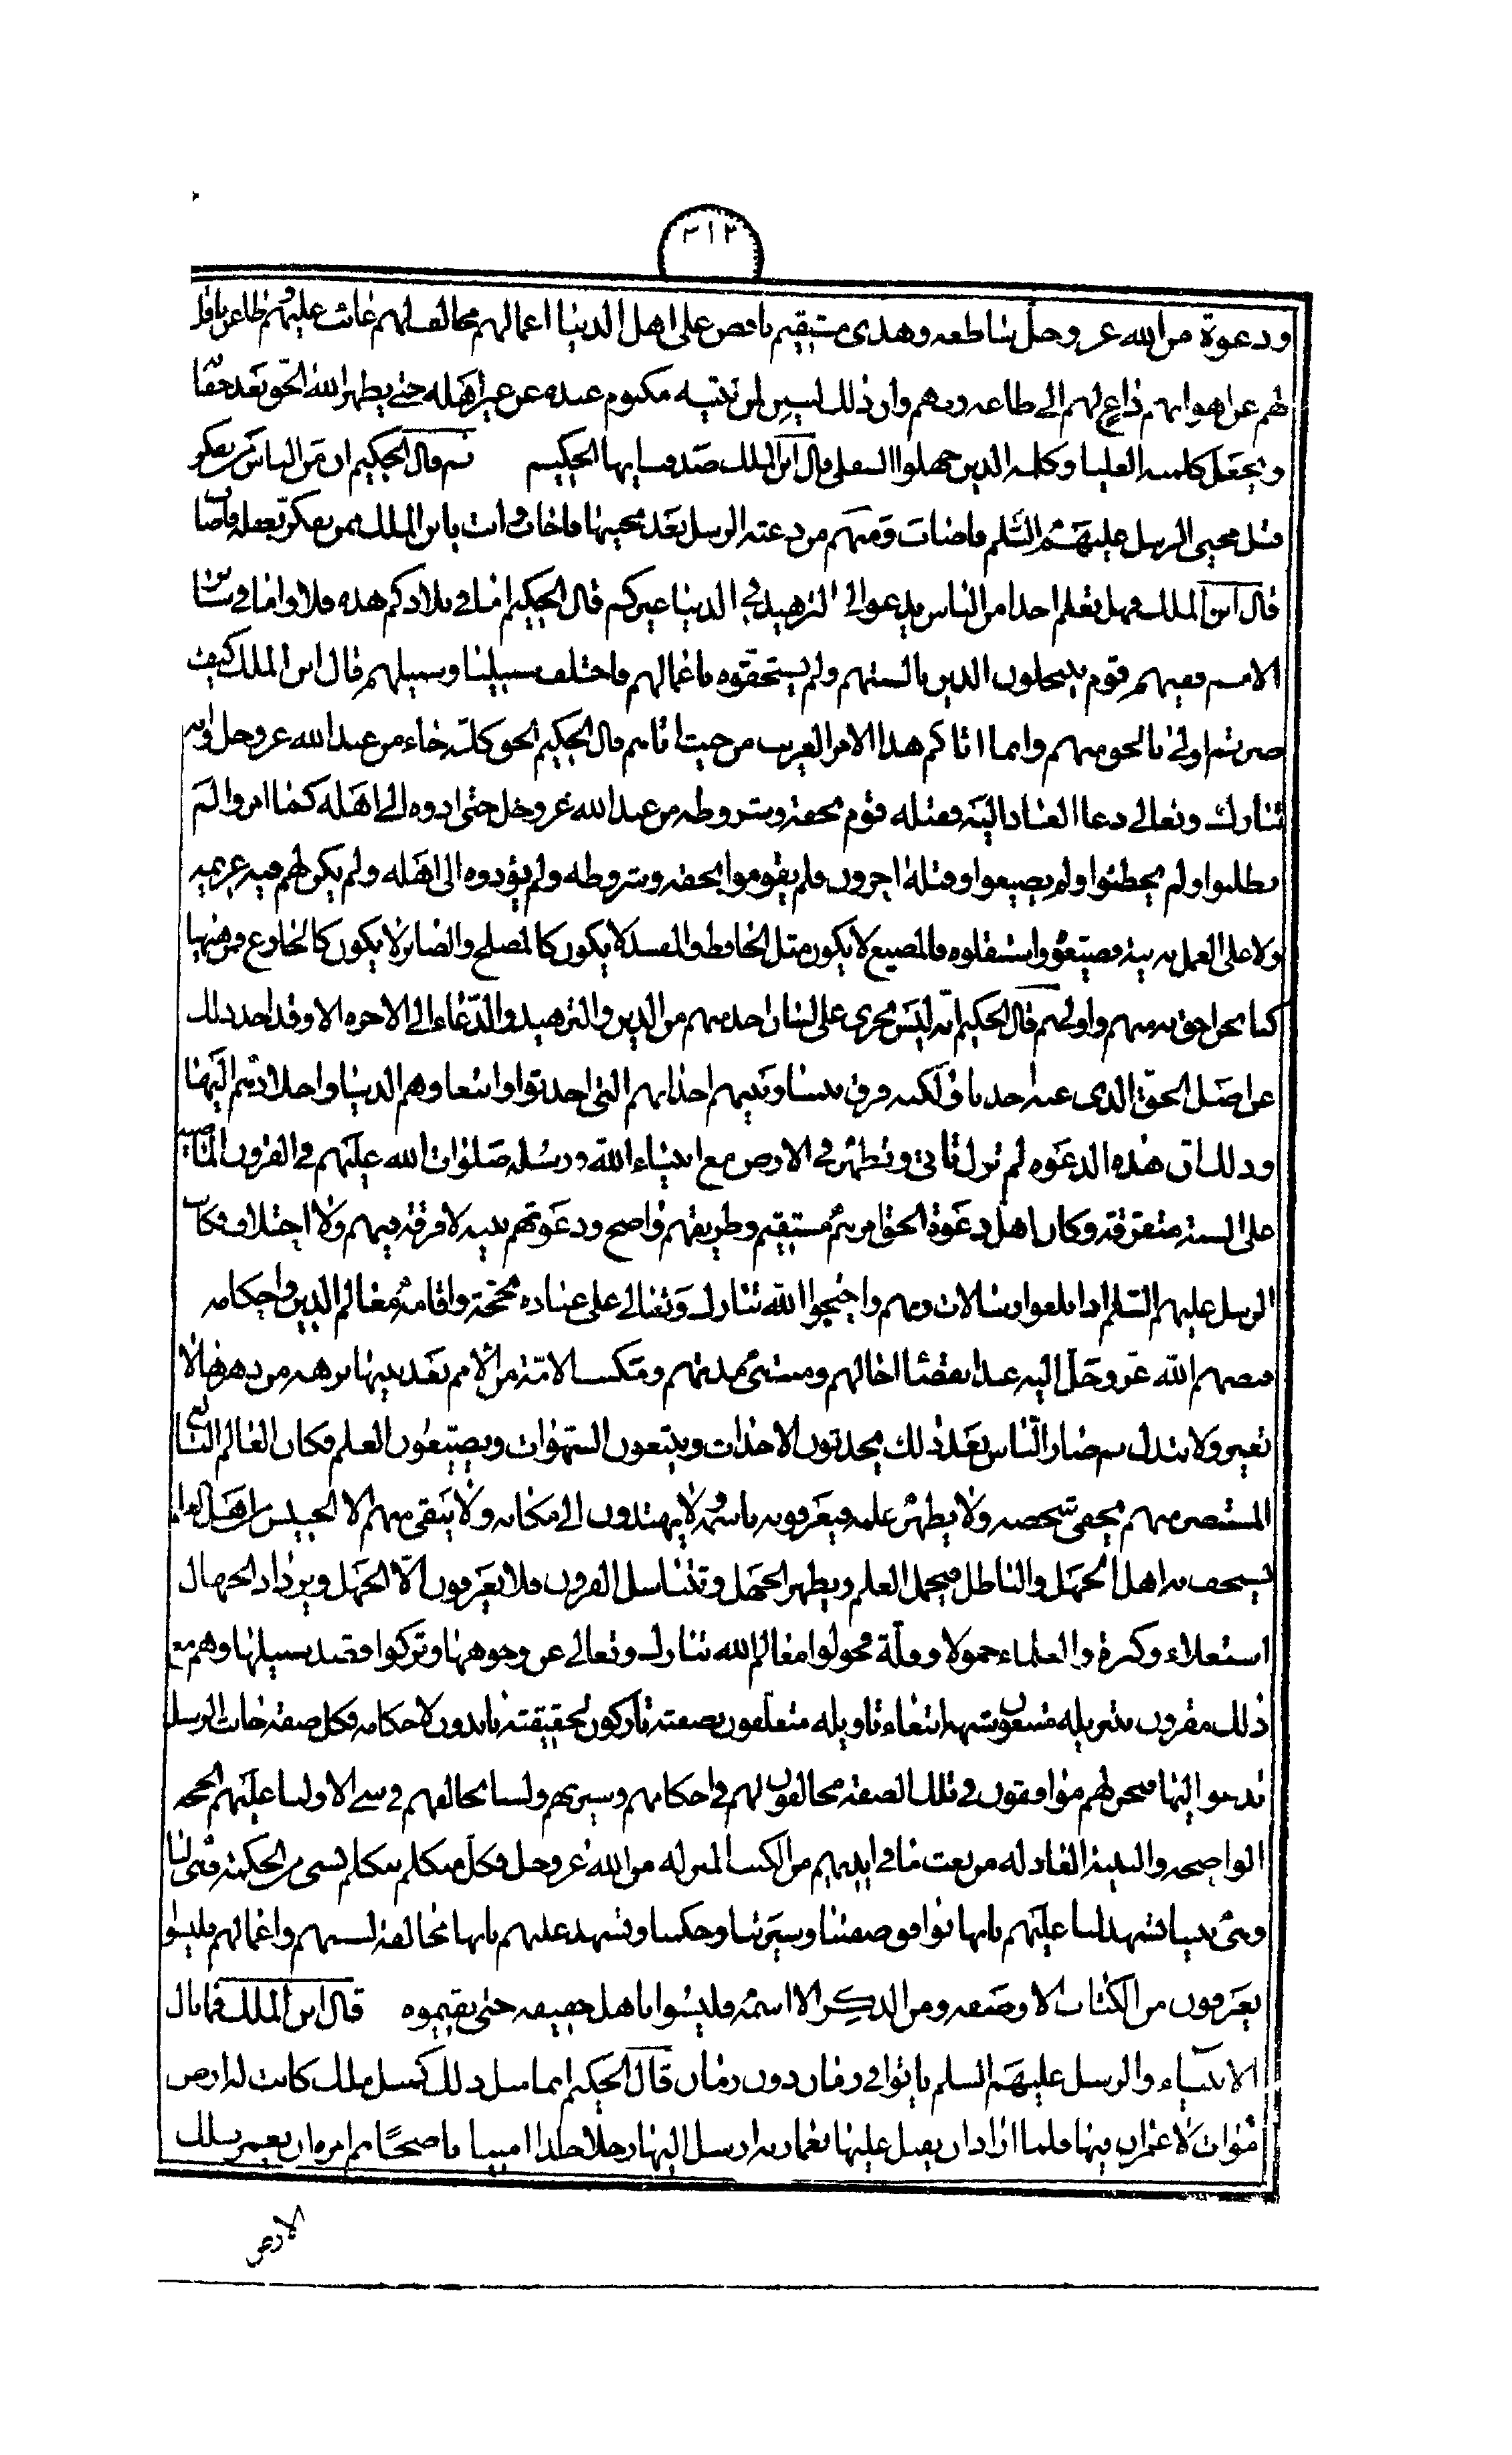 ٣١٢
ودعوة من الله عز وجل ساطعة وهدى مستقيم ناقص على اهل الدنيا اعمالهم مخالف لهم عائب عليهم طاعن ناقل
لهم عن اهوائهم داع لهم الى طاعة ربهم وان ذلك لبين لمن تنبه مكتوم عنده عن غير اهله حتى يظهر الله الحق بعد خفائه
ويجعل كلمته العليا وكلمة الذين جهلوا السفلى قال ابن الملك صدقت ايها الحكيم ثم قال الحكيم ان من الناس من تفكر
قبل مجيء الرسل عليهم السلم فاصاب ومنهم من دعته الرسل بعد مجيئها فاجاب وانت يا بن الملك ممن تفكر بعقله فاصاب
قال ابن الملك فهل تعلم احدا من الناس يدعو الى التزهيد في الدنيا غيركم قال الحكيم اما في بلادكم هذه فلا واما في سائر
الامم ففيهم قوم ينتحلون الدين بالسنتهم ولم يستحقوه باعمالهم فاختلف سبيلنا وسبيلهم قال ابن الملك كيف
صرتم اولى بالحق منهم وانما اتاكم هذا الامر الغريب من حيث اتاهم قال الحكيم الحق كله جاء من عند الله عز وجل وانه
تبارك وتعالى دعا العباد اليه فقبله قوم بحقه وشروطه من عند الله عز وجل حتى ادوه الى اهله كما امروا لم
يظلموا ولم يخطئوا ولم يضيعوا وقبله اخرون فلم يقوموا بحقه وشروطه ولم يؤدوه الى اهله ولم يكن لهم فيه عزيمة
ولا على العمل به نية فضيعوه واستثقلوه فالمضيع لا يكون مثل الحافظ والمفسد لا يكون كالمصلح والصابر لا يكون كالجازع فمن هيهنا
كنا نحن احق به منهم واولى ثم قال الحكيم انه ليس يجري على لسان احد منهم من الدين والتزهيد والدعاء الى الاخرة الا وقد اخذ ذلك
عن اصل الحق الذي عنه اخذنا ولكنه فرق بيننا وبينهم احداثهم التي احدثوا وابتغاؤهم الدنيا واخلادهم اليها
وذلك ان هذه الدعوة لم تزل تاتي وتظهر في الارض مع انبياء الله ورسله صلوات الله عليهم في القرون الماضية
على السنة متفرقة وكان اهل دعوة الحق امرهم مستقيم وطريقهم واضح ودعوتهم بينة لا فرقة فيهم ولا اختلاف فكانت
الرسل عليهم السلم اذا بلغوا رسالات ربهم واحتجوا لله تبارك وتعالى على عباده بحجته واقامة معالم الدين واحكامه
قبضهم الله عز وجل اليه عند انقضاء اجالهم ومنتهى مدتهم ومكثت الامة من الامم بعد نبيها برهة من دهرها لا
تغير ولا تبدل ثم صار الناس بعد ذلك يحدثون الاحداث ويتبعون الشهوات ويضيعون العلم فكان العالم البالغ
المستبصر منهم يخفي شخصه ولا يظهر علمه فيعرفونه باسمه ولا يهتدون الى مكانه ولا يبقى منهم الا الخسيس من اهل العلم
يستخف به اهل الجهل والباطل فيخمل العلم ويظهر الجهل وتتناسل القرون فلا يعرفون الا الجهل ويزداد الجهال
استعلاء وكثرة والعلماء خمولا وقلة فحولوا معالم الله تبارك وتعالى عن وجوهها وتركوا قصد سبيلها وهم مع
ذلك مقرون بتنزيله متبعون شبهه ابتغاء تاويله متعلقون بصفته تاركون لحقيقته نابذون لاحكامه فكل صفة جاءت الرسل
تدعو اليها فنحن لهم موافقون في تلك الصفة مخالفون لهم في احكامهم وسيرتهم ولسنا نخالفهم في شيء الا ولنا عليهم الحجة
الواضحة والبينة العادلة من نعت ما في ايديهم من الكتب المنزلة من الله عز وجل فكل متكلم يتكلم بشيء من الحكمة فهي لنا
وهي بيننا تشهد لنا عليهم بانها توافق صفتنا وسيرتنا وحكمنا وتشهد عليهم بانها مخالفة لسنتهم واعمالهم فليسوا
يعرفون من الكتاب الا وصفه ومن الذكر الا اسمه فليسوا باهل حقيقته حتى يقيموه قال ابن الملك فما بال
الانبياء والرسل عليهم السلم ياتوا في زمان دون زمان قال الحكيم انما مثل ذلك كمثل ملك كانت له ارض
موات لا عمران فيها فلما اراد ان يقبل عليها بعمارته ارسل اليها رجلا جلدا امينا ناصحا ثم امره ان يعمر تلك
الارض